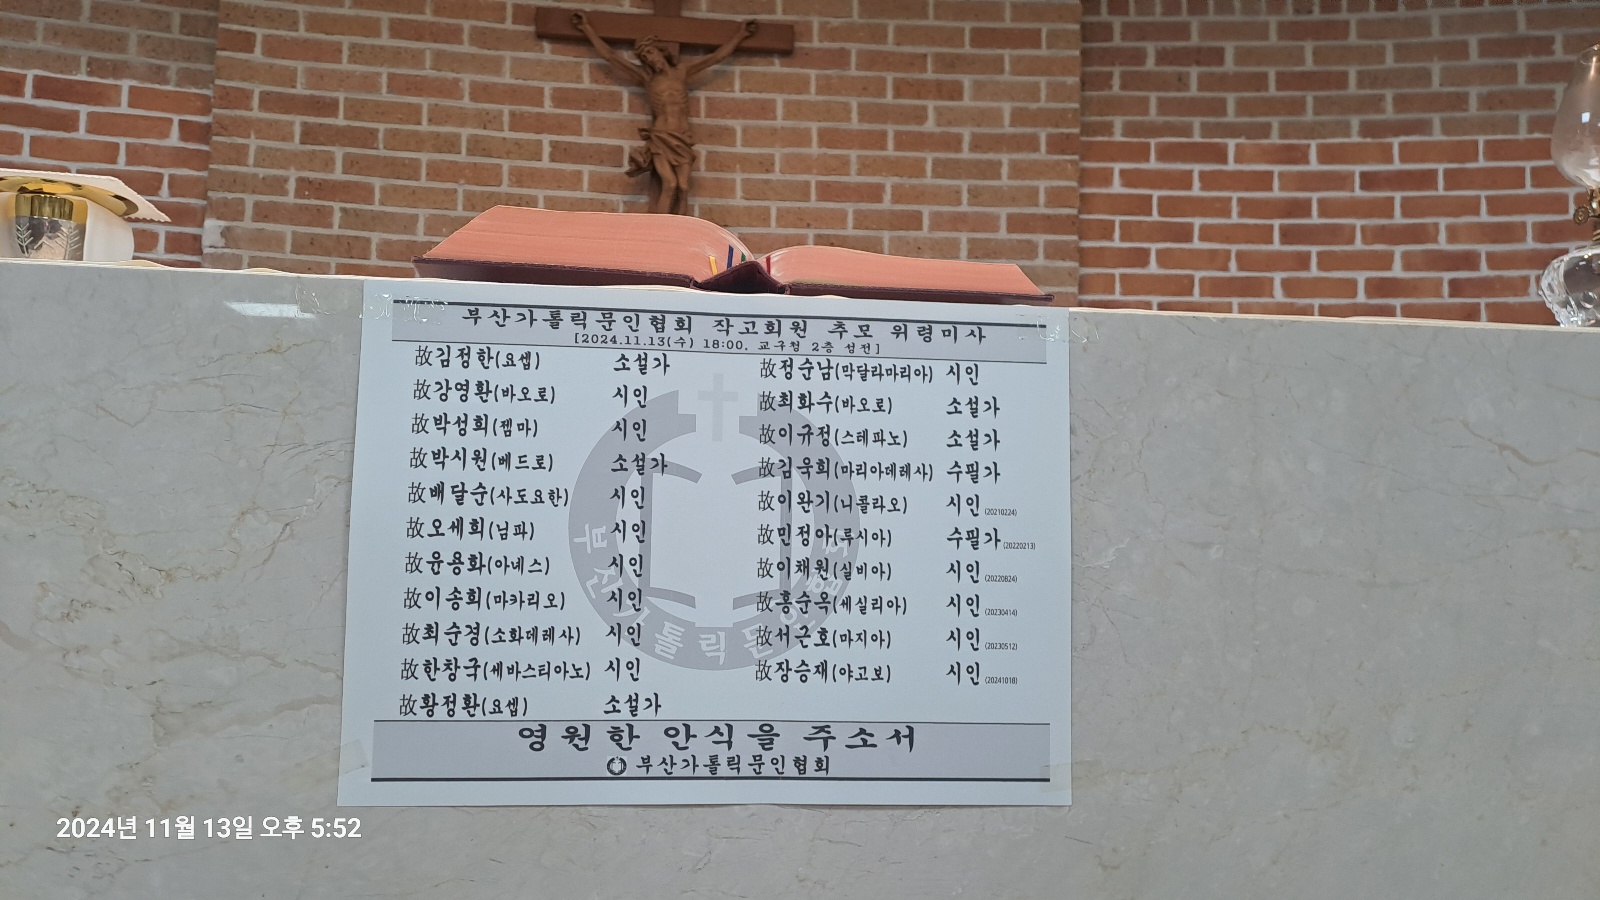 부산가톨릭문인협회 작고회원 추모 위령미사
[2024.11.13(수) 18:00, 교구청 2층 성전]
故김정한(요셉) 소설가
故강영환(바오로) 시인
故박성희(젬마) 시인
故박시원(베드로) 소설가
故배달순(사도요한) 시인
故오세희(님파) 시인
故윤용화(아녜스) 시인
故이송희(마카리오) 시인
故최순경(소화데레사) 시인
故한창국(세바스티아노) 시인
故황정환(요셉) 소설가
故정순남(막달라마리아) 시인
故최화수(바오로) 소설가
故이규정(스테파노) 소설가
故김욱희(마리아데레사) 수필가
故이완기(니콜라오) 시인 (20210224)
故민정아(루시아) 수필가 (20220213)
故이채원(실비아) 시인 (20220824)
故홍순옥(세실리아) 시인 (20230414)
故서근호(마지아) 시인 (20230512)
故장승재(야고보) 시인 (20241018)
부산가톨릭문인협회
영원한 안식을 주소서
부산가톨릭문인협회
2024년 11월 13일 오후 5:52